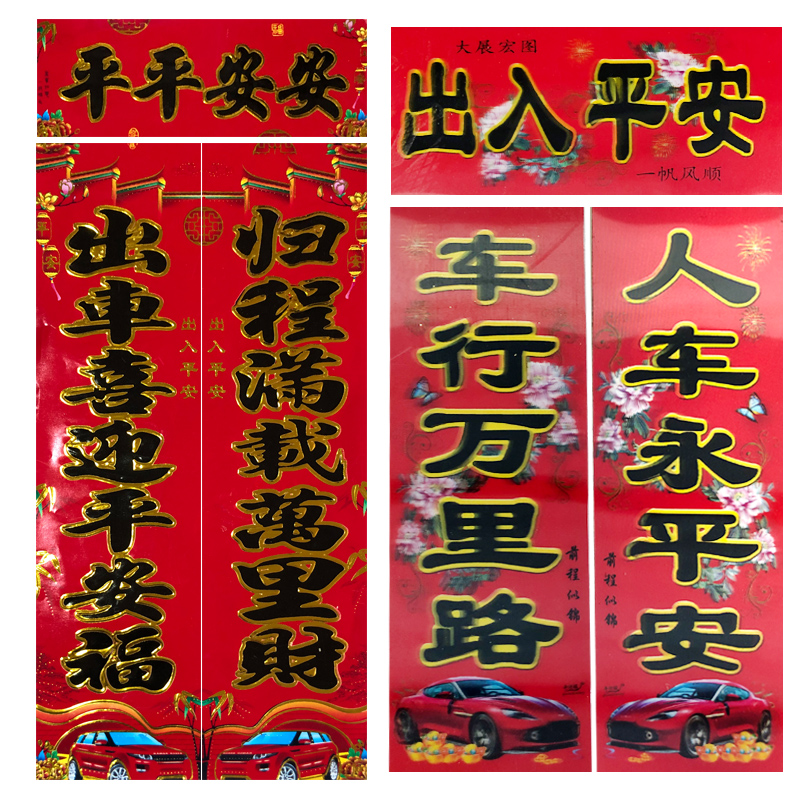 平平安安
出車喜迎平安福
归程滿載萬里財
出入平安
出入平安
平安
大展宏图
出入平安
一帆风顺
车行万里路
前程似锦
人车永平安
前程似锦